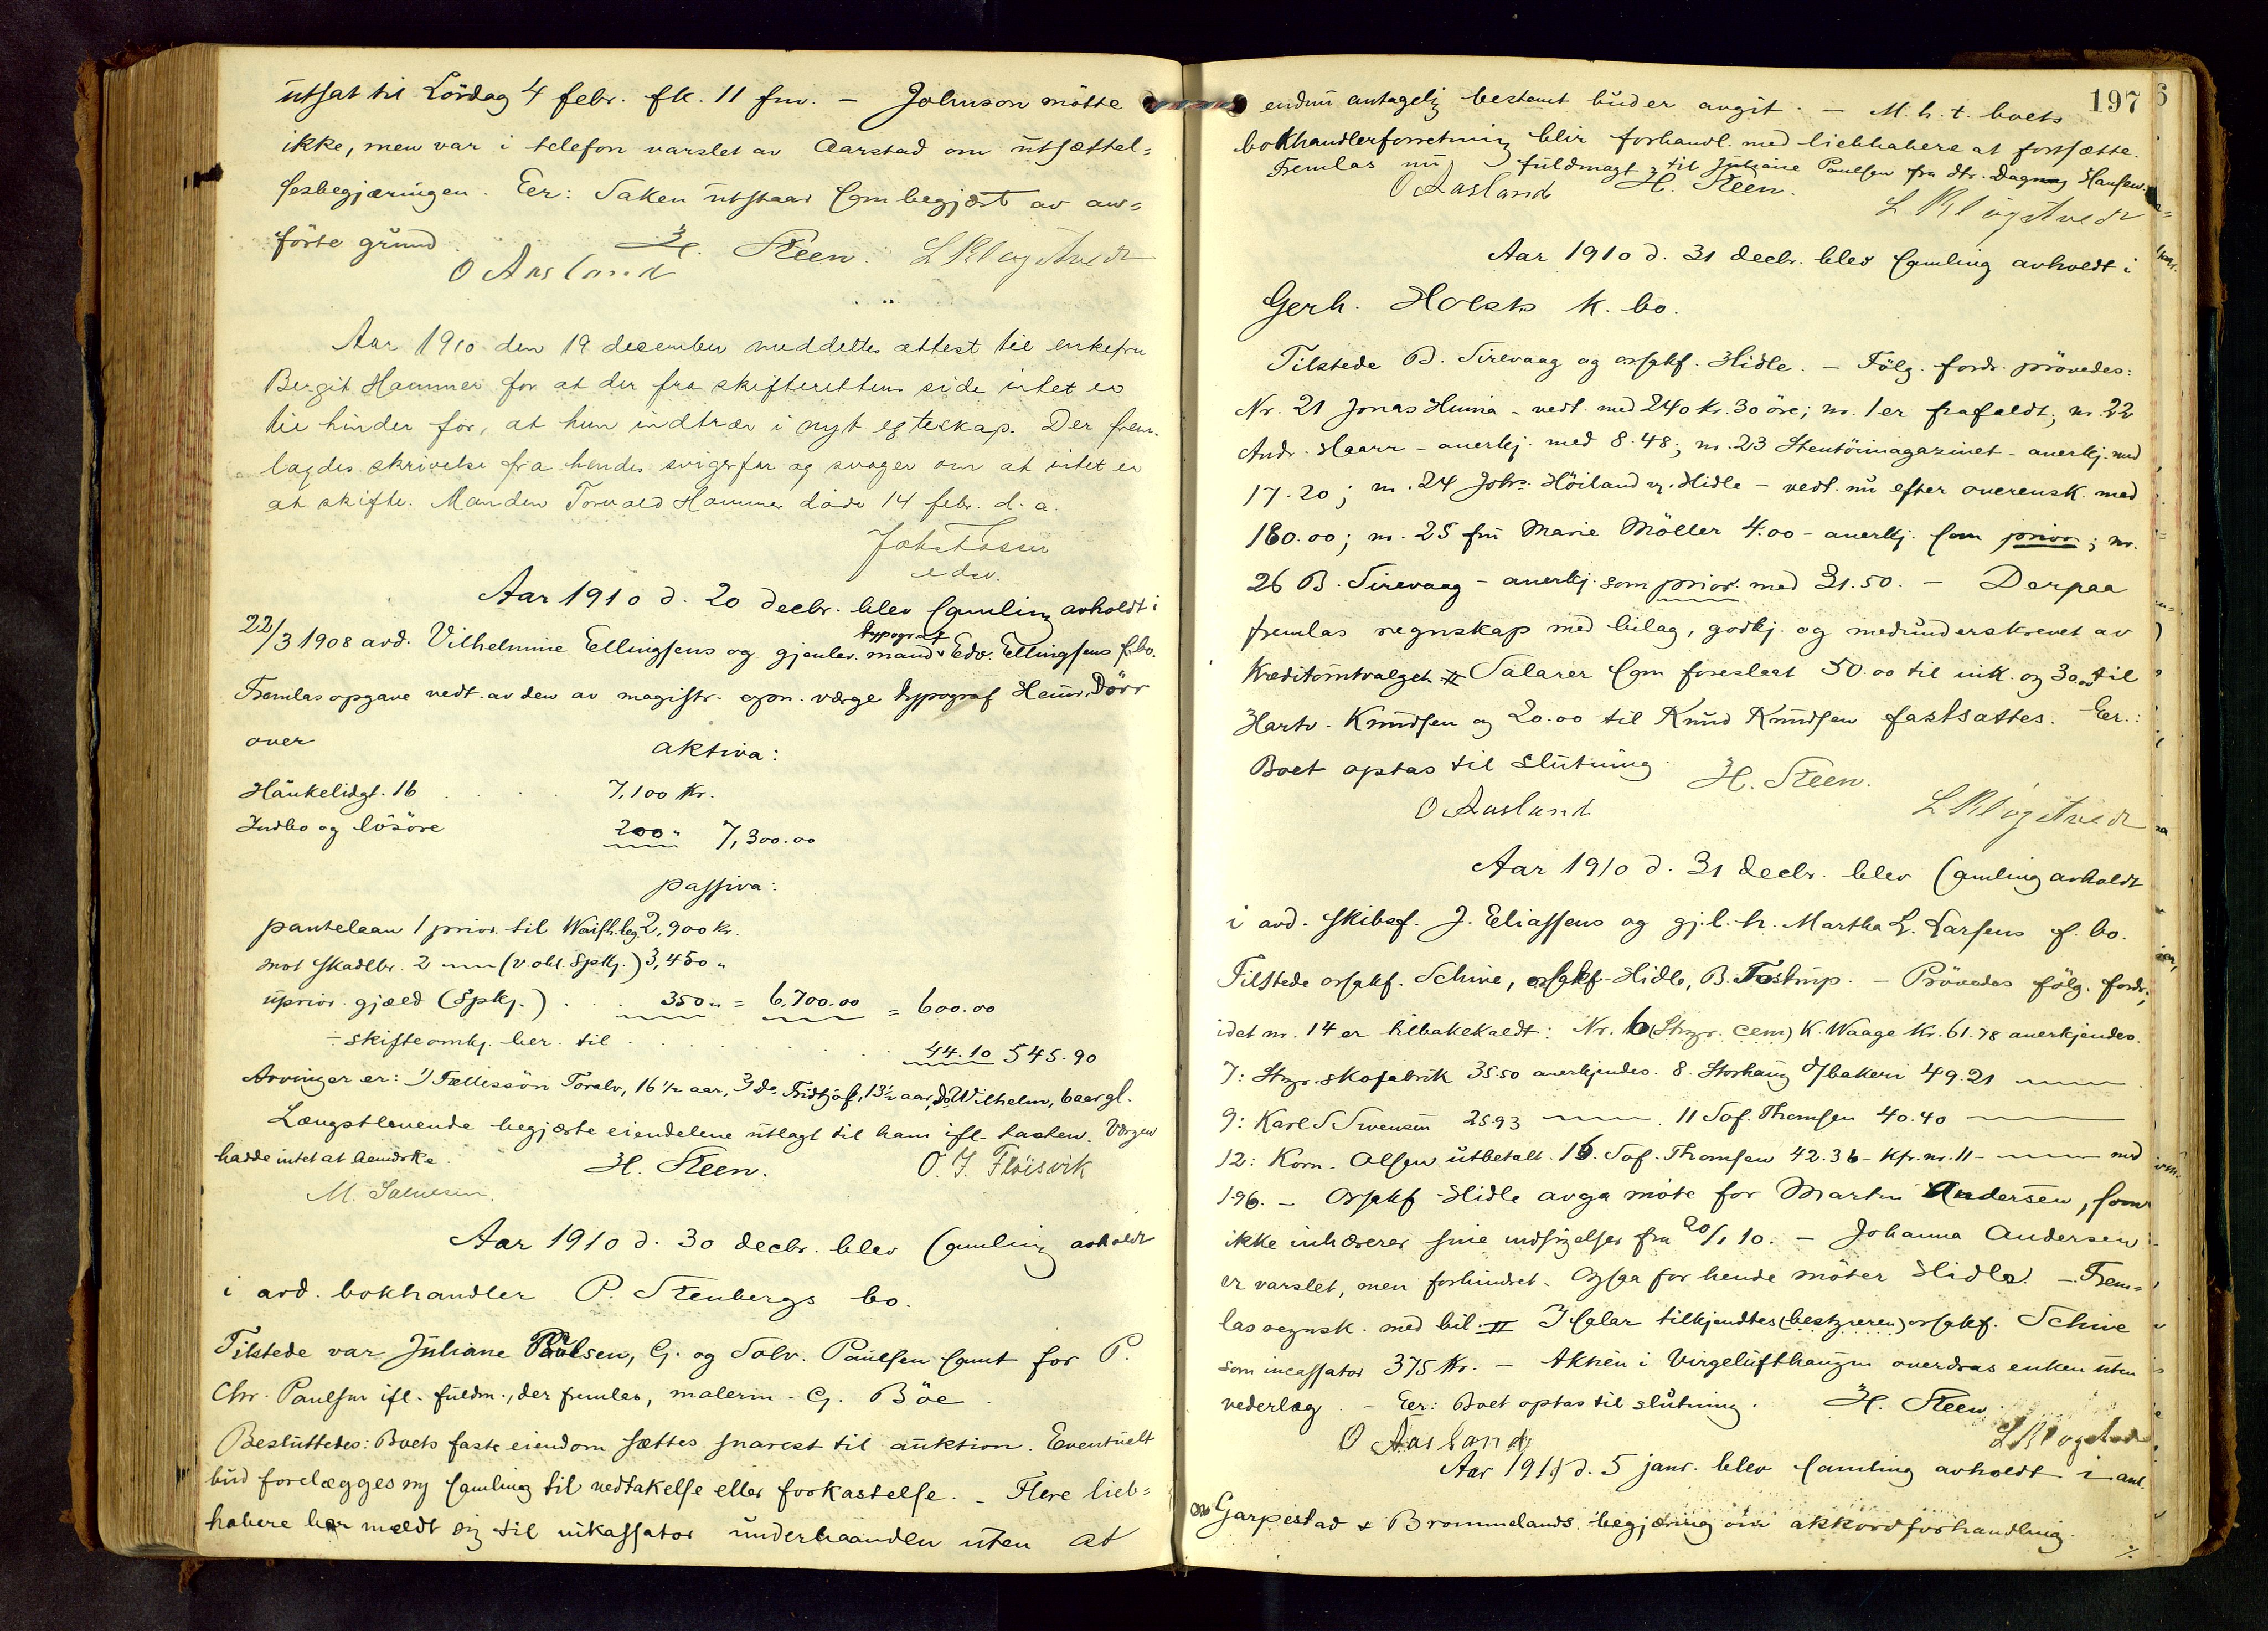 utsat til Lördag 4 febr. fk. 11 fm. - Johnson mötte
ikke, men var i telefon varslet av Aarstad om utsættel-
sesbegjæringen. Eer: Saken utstaar som begjært av an-
förte grund.
O Aasland H. Steen. L Klögetvedt
Aar 1910 den 19 december meddeltes attest til enkefru
Bergit Hammer for at der fra skifterettens side intet er
til hinder for, at hun indtrær i nyt egteskap. Der frem-
lagdes skrivelse fra hendes svigerfar og svoger om at intet er
at skifte. Manden Torvald Hammer döde 14 febr. d. a.
edsv.
Aar 1910 d. 20 decbr. blev samling avholdt i
22/3 1908 avd. Vilhelmine Ellingsens og gjenlev. mand typograf Edv. Ellingsens f.bo.
Fremlas opgave vedt. av den av magistr. opn. værge typograf Henr. Dörr
over aktiva:
Haukelidgt. 16 . . . 7,100 Kr.
Indbo og lösöre 200 " 7,300.00
passiva:
pantelaan 1 prior. til Waish.leg. 2,900 Kr.
mot skadlbr. 2 " (v. obl. Spkj.) 3,450 "
uprior. gjæld (Spkj.) . . 350 " = 6,700.00 = 600.00
÷ skifteomkj. ber. til . . . . 44.10 545.90
Arvinger er: 1) Fællessön Toralv, 16 1/2 aar, 2) do. Fridtjof, 13 1/2 aar, do Wilhelm, 6 aar gl.
Længstlevende begjærte eiendelene utlagt til ham ifl. taksten. Værgen
hadde intet at bemærke.
H. Steen. O. J. Flöisvik
M. Samuelsen.
Aar 1910 d. 30 decbr. blev samling avholdt
i avd. bokhandler P. Stenbergs bo.
Tilstede var Juliane Paulsen, G. og Solv. Paulsen samt for P.
Chr. Paulsen ifl. fuldm., der fremlas, malerm. G. Böe.
Besluttedes: Boets faste eiendom sættes snarest til auktion. Eventuelt
bud forelægges ny samling til vedtakelse eller forkastelse. - Flere lieb-
habere har meldt sig til inkassator underhaanden uten at
197
endnu antagelig bestemt bud er avgit. - M. h. t. boets
bokhandlerforretning blir forhandl. med liebhabere at fortsætte.
Fremlas nu fuldmagt til Juliane Paulsen fra dtr. Dagny Hansen.
O Aasland H. Steen. L Klögetvedt
Aar 1910 d. 31 decbr. blev samling avholdt i
Gerh. Holsts k. bo.
Tilstede B. Sirevaag og orsakf. Hidle. - Fölg. fordr. prövedes:
Nr. 21 Jonas Huina - vedt. med 240 kr. 30 öre; nr. 1 er frafaldt; nr. 22
Andr. Haarr - anerkj. med 8.48; nr. 23 Stentöimagazinet - anerkj. med
17.20; nr. 24 Johs. Höiland v. Hidle - vedt. nu efter overensk. med
180.00; nr. 25 fru Marie Möller 4.00 - anerkj. som prior; nr.
26 B. Sirevaag - anerkj. som prior. med 31.50. - Derpaa
fremlas regnskap med bilag, godkj. og medunderskrevet av
Kreditorutvalget. Salarer som foreslaat 50.00 til ink. og 30.00 til
Hartv. Knudsen og 20.00 til Knud Knudsen fastsattes. Eer.:
Boet optas til slutning.
H. Steen.
O Aasland L Klögetvedt
Aar 1910 d. 31 decbr. blev samling avholdt
i avd. skibsf. J. Eliassens og gj.l. h. Martha L. Larsens f. bo.
Tilstede orsakf. Schive, orsakf. Hidle, B. Tostrup. - Prövedes fölg. fordr.,
idet nr. 14 er tilbakekaldt: Nr. 6 (Stvgr. cem) K. Waage Kr. 61.78 anerkjendes.
7: Stvgr. skofabrik 35.50 anerkjendes. 8. Storhaug d/bakeri 49.21 "
9: Karl S Svensen 25.93 " . 11 Sof. Thomsen 40.40 "
12: Korn. Olsen utbetalt. 16. Sof. Thomsen 42.36 - kfr. nr. 11 - " med
1.96. - Orsakf. Hidle avga möte for Martin Andersen, som
ikke inhærerer sine indsigelser fra 20/1 10. - Johanna Andersen
er varslet, men forhindret. Ogsaa for hende möter Hidle. - Frem-
las regnsk. med bil. I salar tilkjendtes (bestyreren) orsakf. Schive
som incassator 375 Kr. - Aktien i Virgelufthaugen overdras enken uten
vederlag. - Eer: Boet optas til slutning. H. Steen
O Aasland L Klögetvedt
Aar 1911 d. 5 janr. blev samling avholdt i anl.
Garpestad & Brommelands begjæring om akkordforhandling.